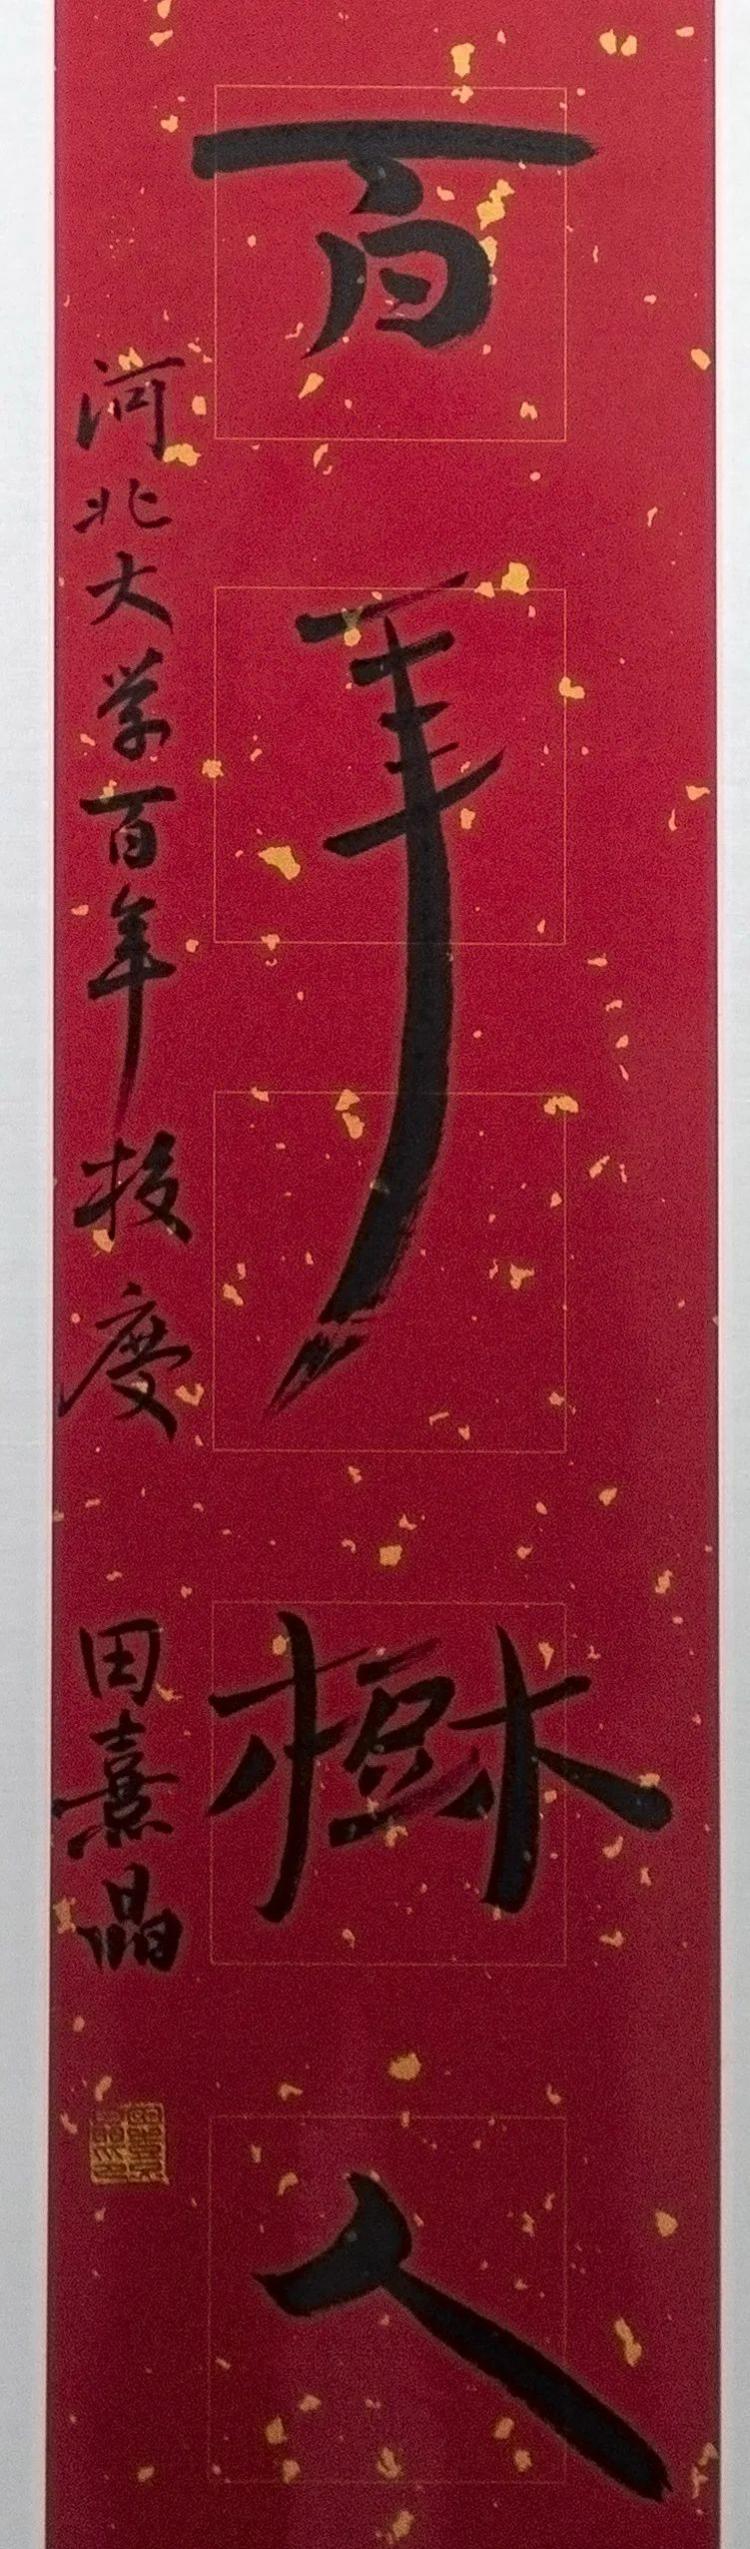 百年樹人
河北大学百年校慶
田熹晶